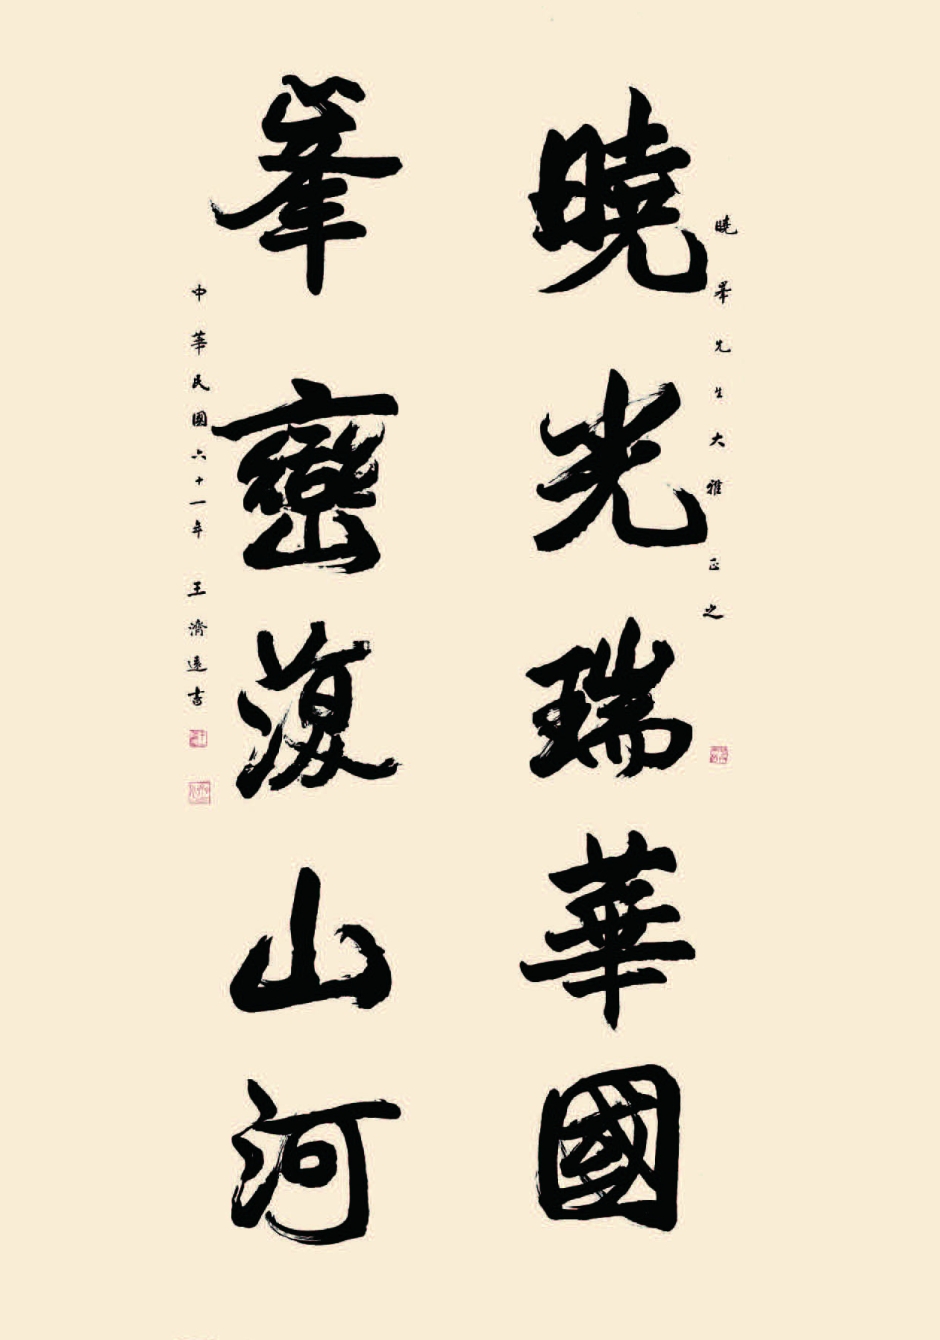 曉峯先生大雅正之
曉光瑞華國
峯巒復山河
中華民國六十一年 王濟遠書